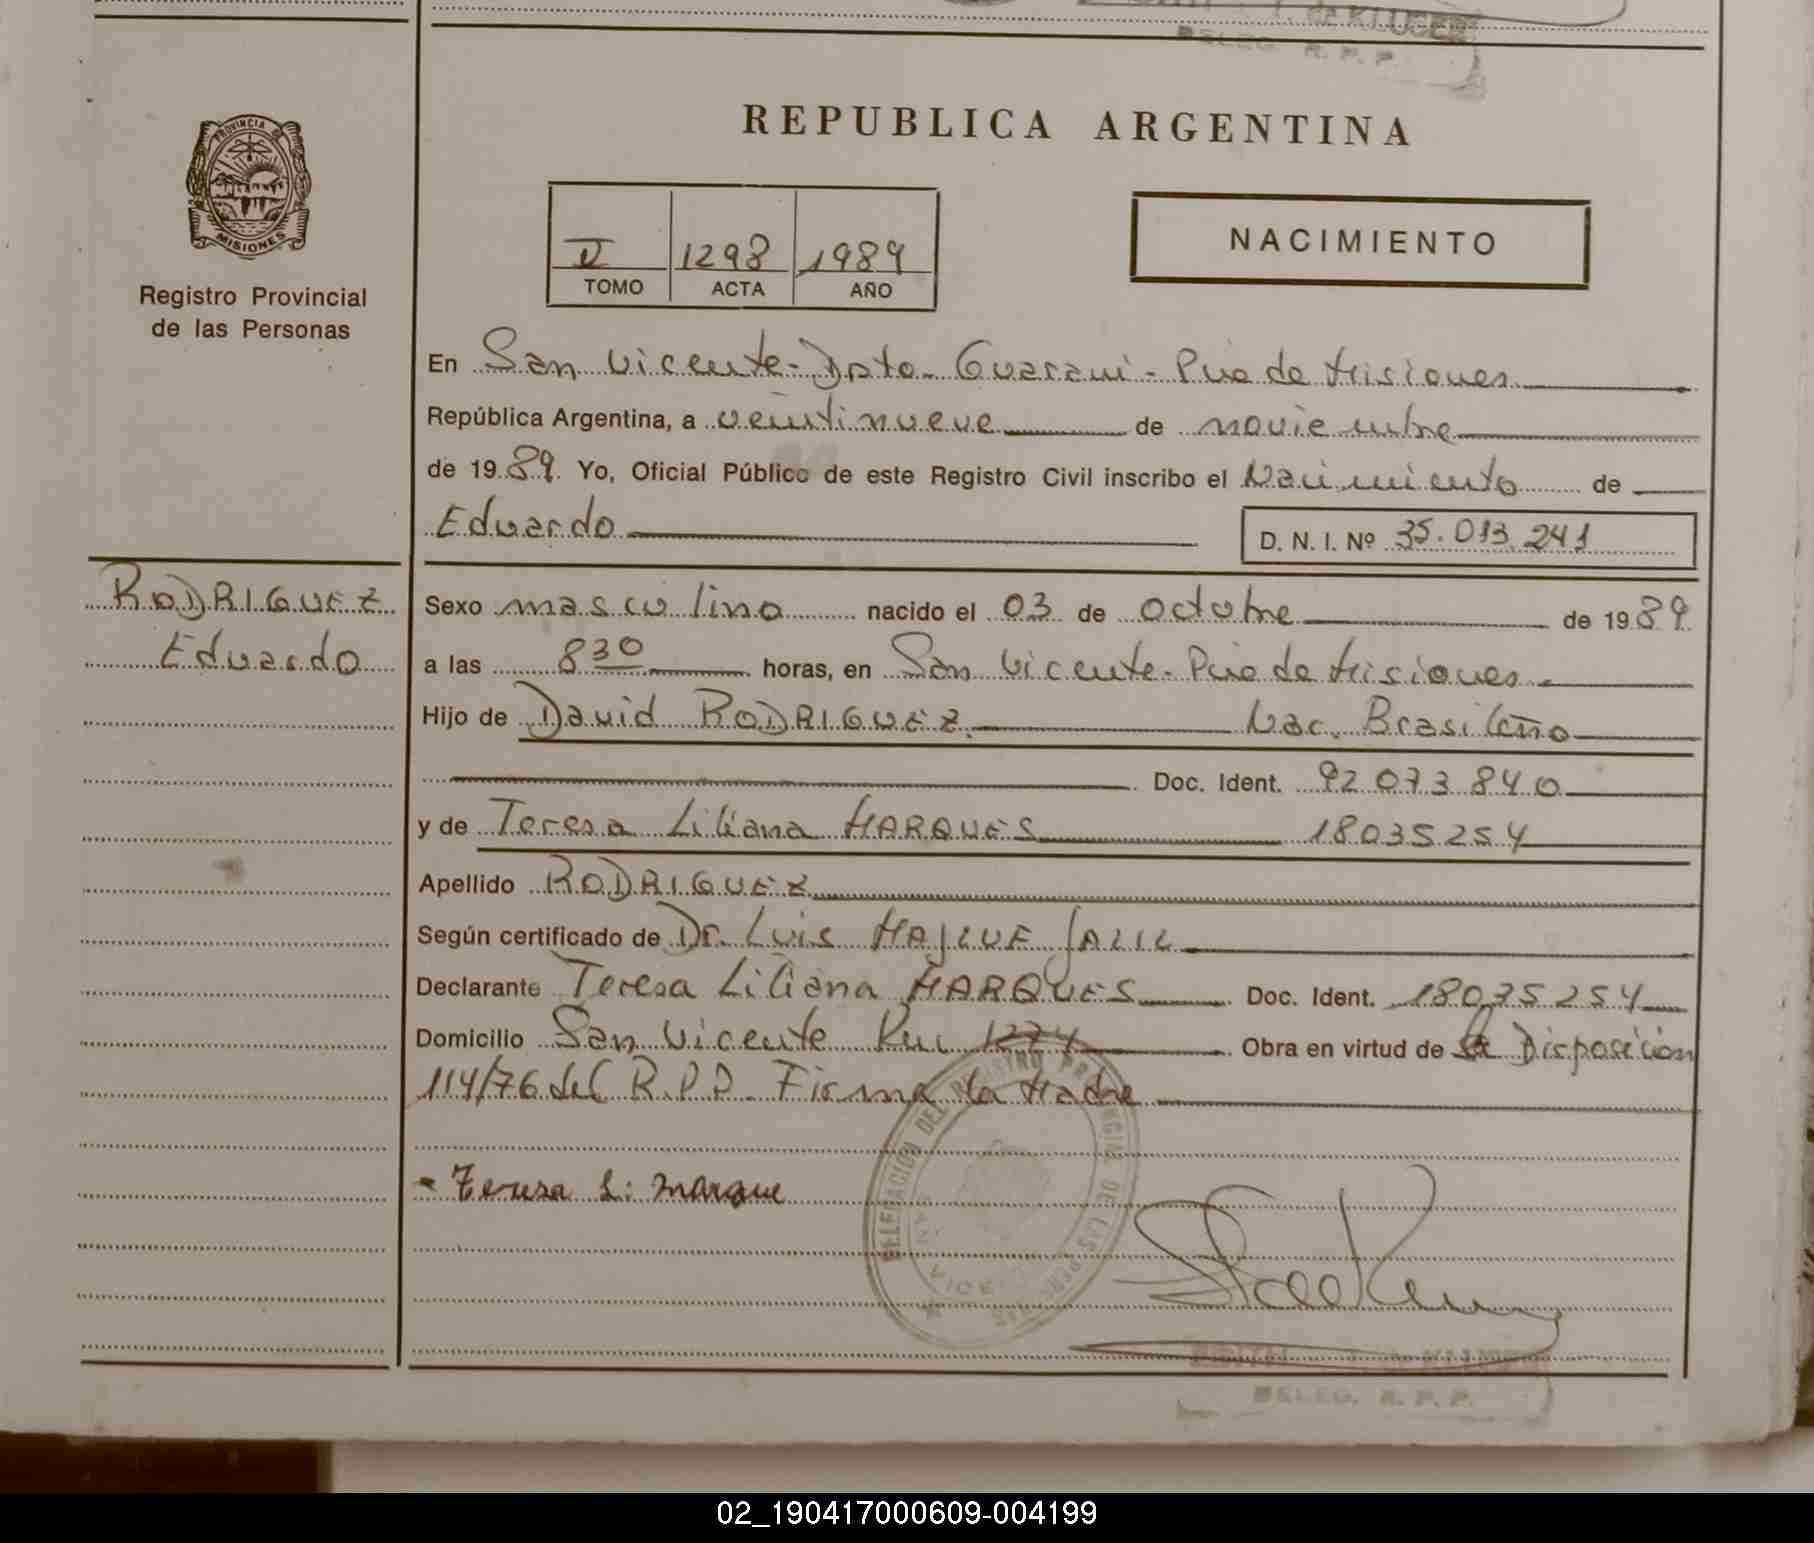 T. de KLUGER
DELEG. R. P. P.
PROVINCIA DE
MISIONES
Registro Provincial
de las Personas
REPUBLICA ARGENTINA
II 1298 1989
TOMO ACTA AÑO
NACIMIENTO
En San Vicente - Dpto. Guarani - Pcia de Misiones
República Argentina, a veintinueve de noviembre
de 19 89. Yo, Oficial Público de este Registro Civil inscribo el Nacimiento de
Eduardo
D. N. I. Nº 35.013.241
RODRIGUEZ
Eduardo
Sexo masculino nacido el 03 de octubre de 19 89
a las 8 30 horas, en San Vicente - Pcia de Misiones
Hijo de David RODRIGUEZ. Nac. Brasileño
Doc. Ident. 92 073 840
y de Teresa Liliana MARQUES 18035254
Apellido RODRIGUEZ
Según certificado de Dr. Luis JALIL
Declarante Teresa Liliana MARQUES Doc. Ident. 18035254
Domicilio San Vicente Km 1274 Obra en virtud de la Disposición
114/76 del R.P.P. Firma la Madre
- Teresa L: marque
DELEGACION DEL REGISTRO PROVINCIAL DE LAS PERSONAS
DELEG. R. P. P.
02_190417000609-004199